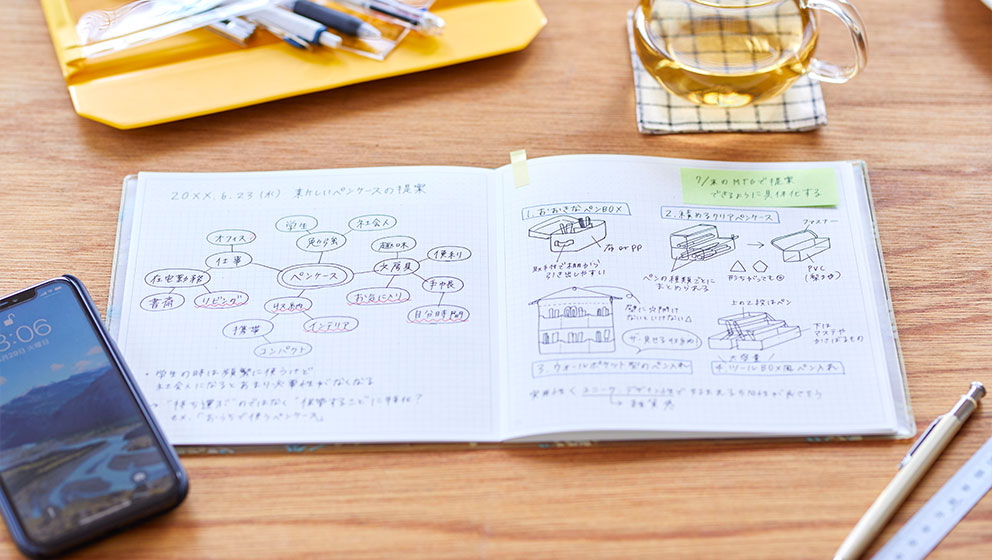 20XX.6.23(水) 新しいペンケースの提案
学生
社会人
オフィス
勉強
趣味
便利
仕事
ペンケース
文房具
在宅勤務
手帳
書斎
リビング
収納
お気に入り
自分時間
携帯
インテリア
コンパクト
・学生の時は頻繁に使うけど
社会人になるとあまり必要性がなくなる
・"持ち運ぶ"のではなく"保管すること"に特化?
ex.「おうちで使うペンケース」
7/末のMTGで提案
できるように具体化する
1. おおきなペンBOX
布 or PP
取っ手付で棚から
引き出しやすい
2. 積めるクリアペンケース
ファスナー
ペンの種類ごとに
まとめられる
形ちがっても
PVC
壁に穴開け
ないといけない△
ザ・見せる収納
3. ウォールポケット型のペン入れ
上の2段はペン
下は
マステや
かさばるもの
大容量!
4. ツールBOX風ペン入れ
8:06